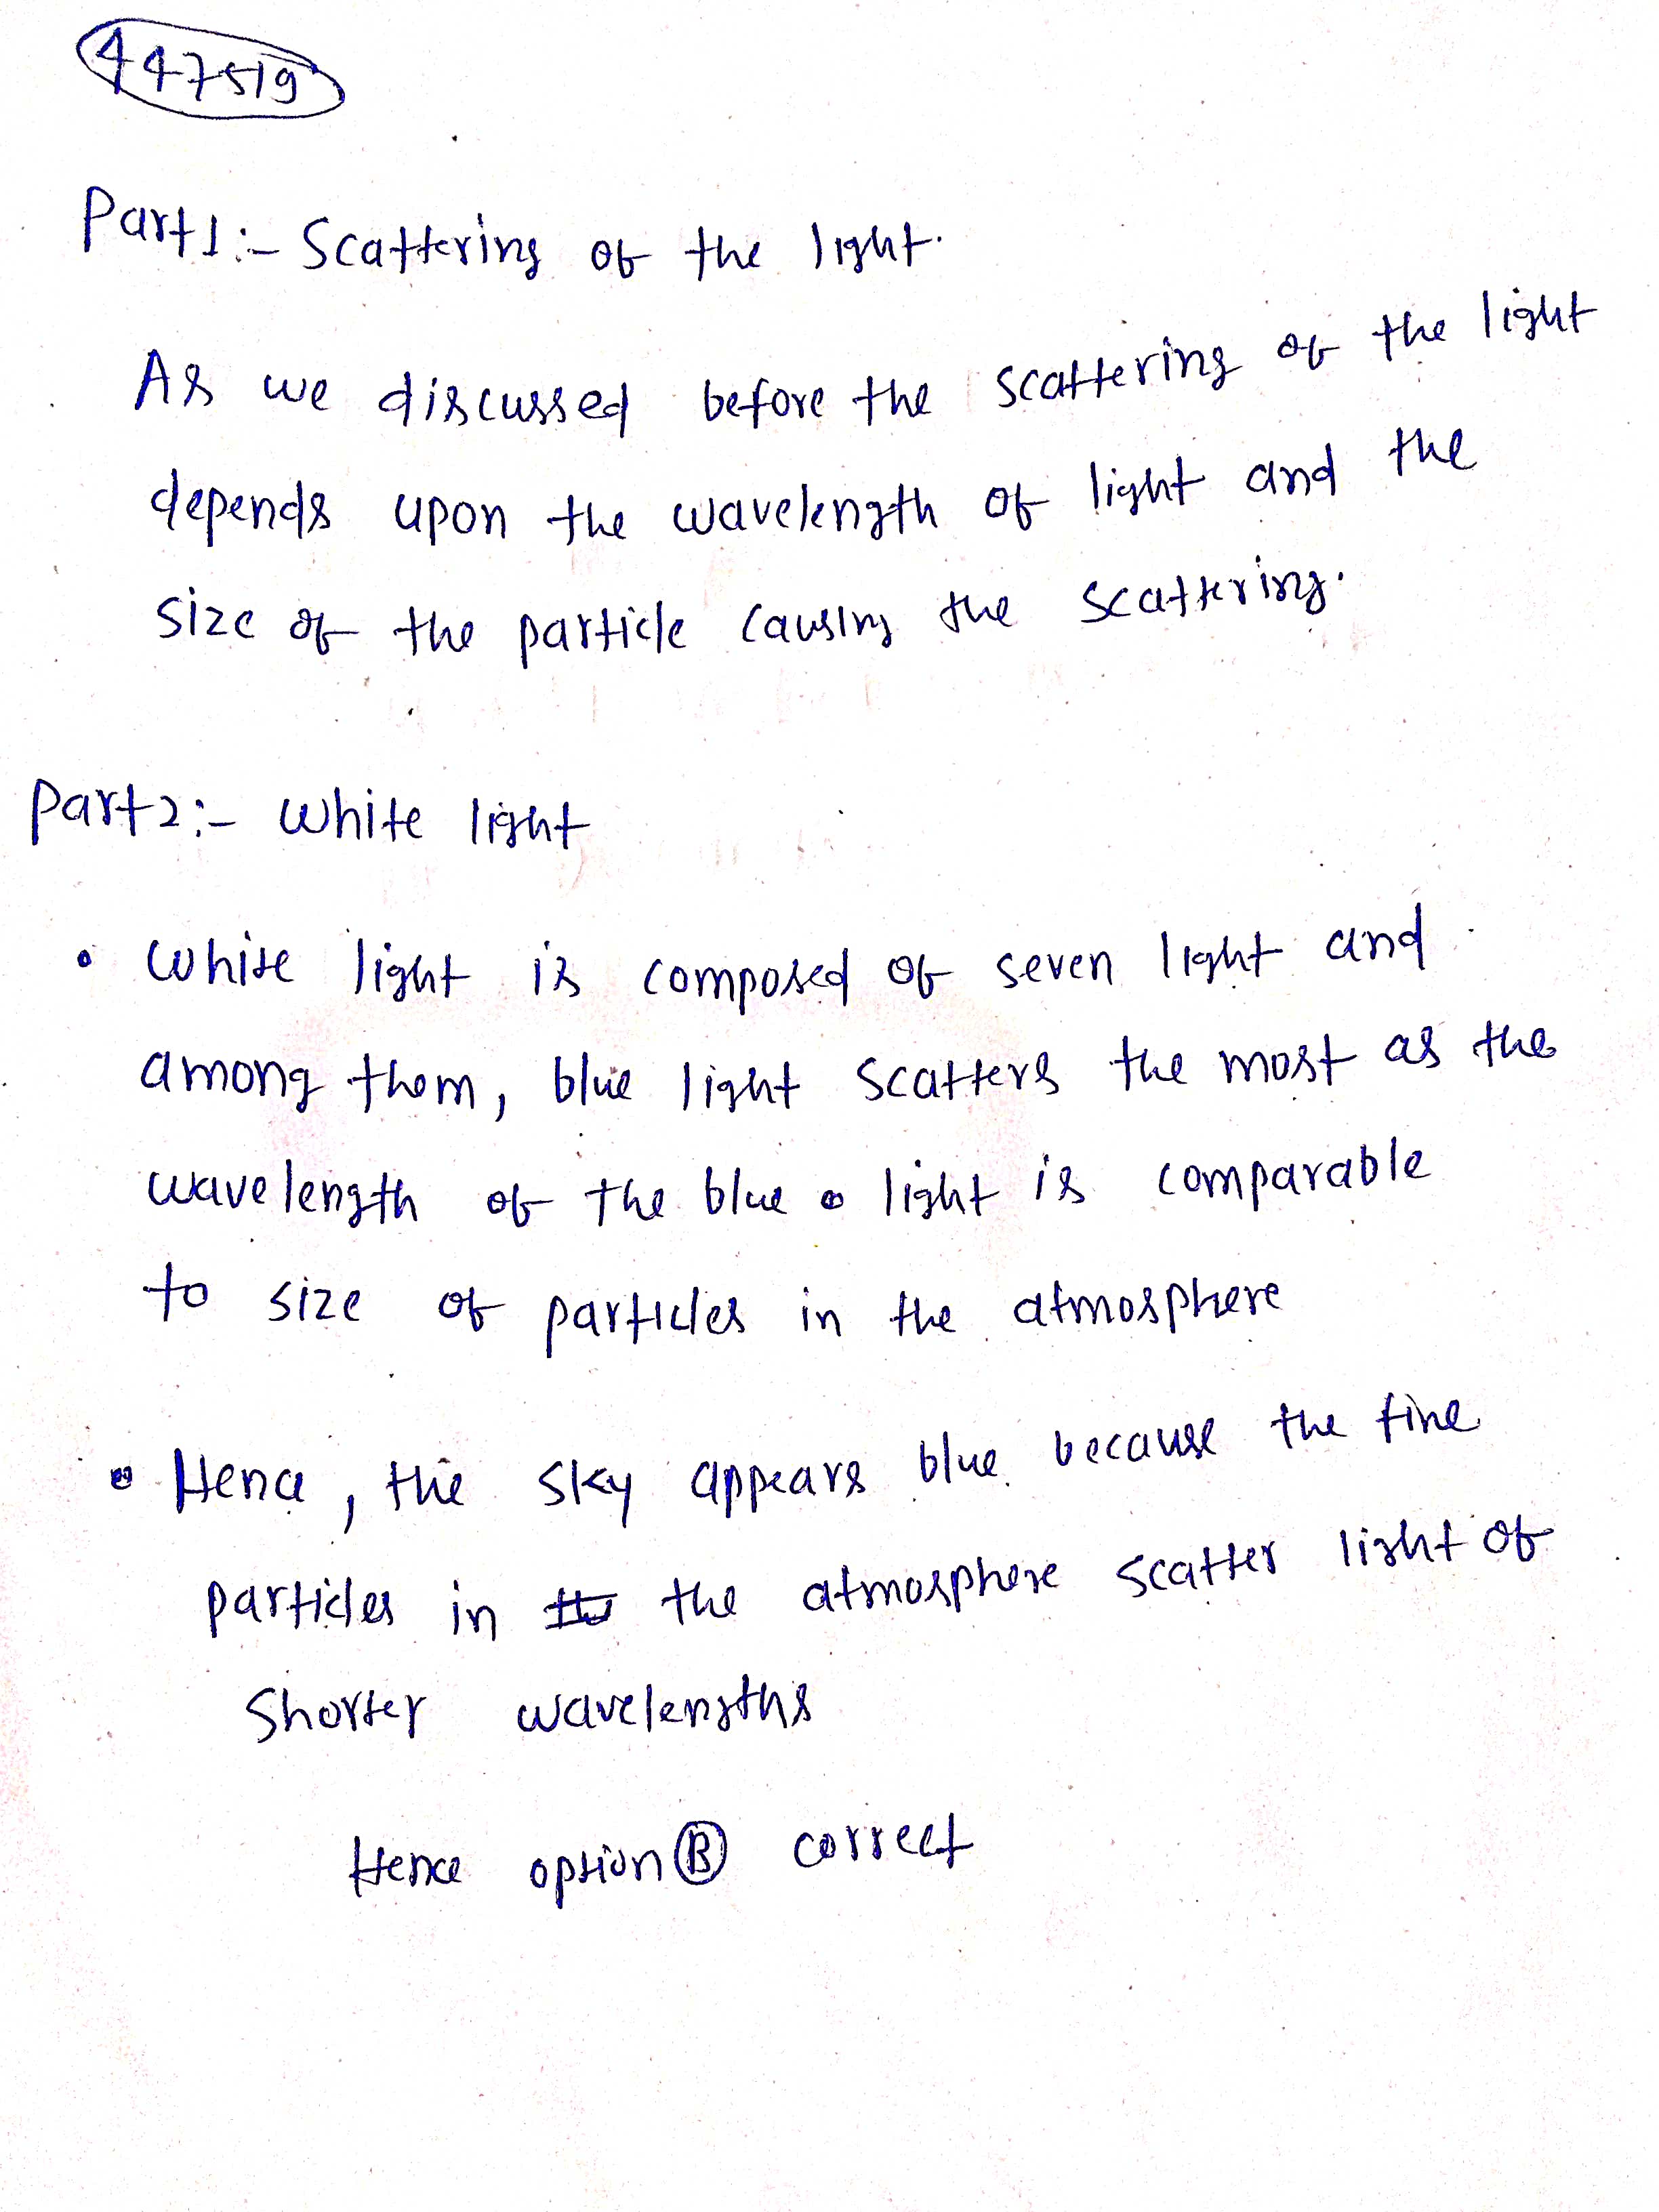 447519
Part1:- Scattering of the light.
As we discussed before the scattering of the light
depends upon the wavelength of light and the
size of the particle causing the scattering.
Part2:- White light
• White light is composed of seven light and
among them, blue light scatters the most as the
wavelength of the blue light is comparable
to size of particles in the atmosphere
• Hence, the sky appears blue because the fine
particles in the atmosphere scatter light of
Shorter wavelengths
Hence option Ⓑ correct